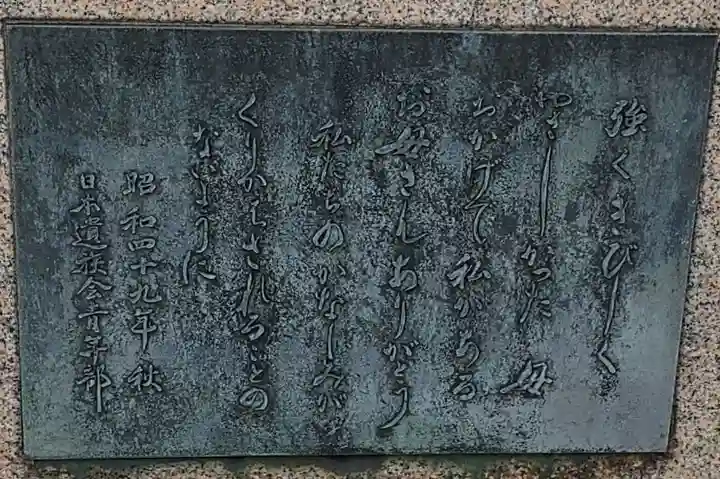 強くきびしく
やさしかった 母
おかげで 私がある
お母さんありがとう
私たちの かなしみが
くりかえされることの
ないように
昭和四十九年 秋
日本遺族会青年部